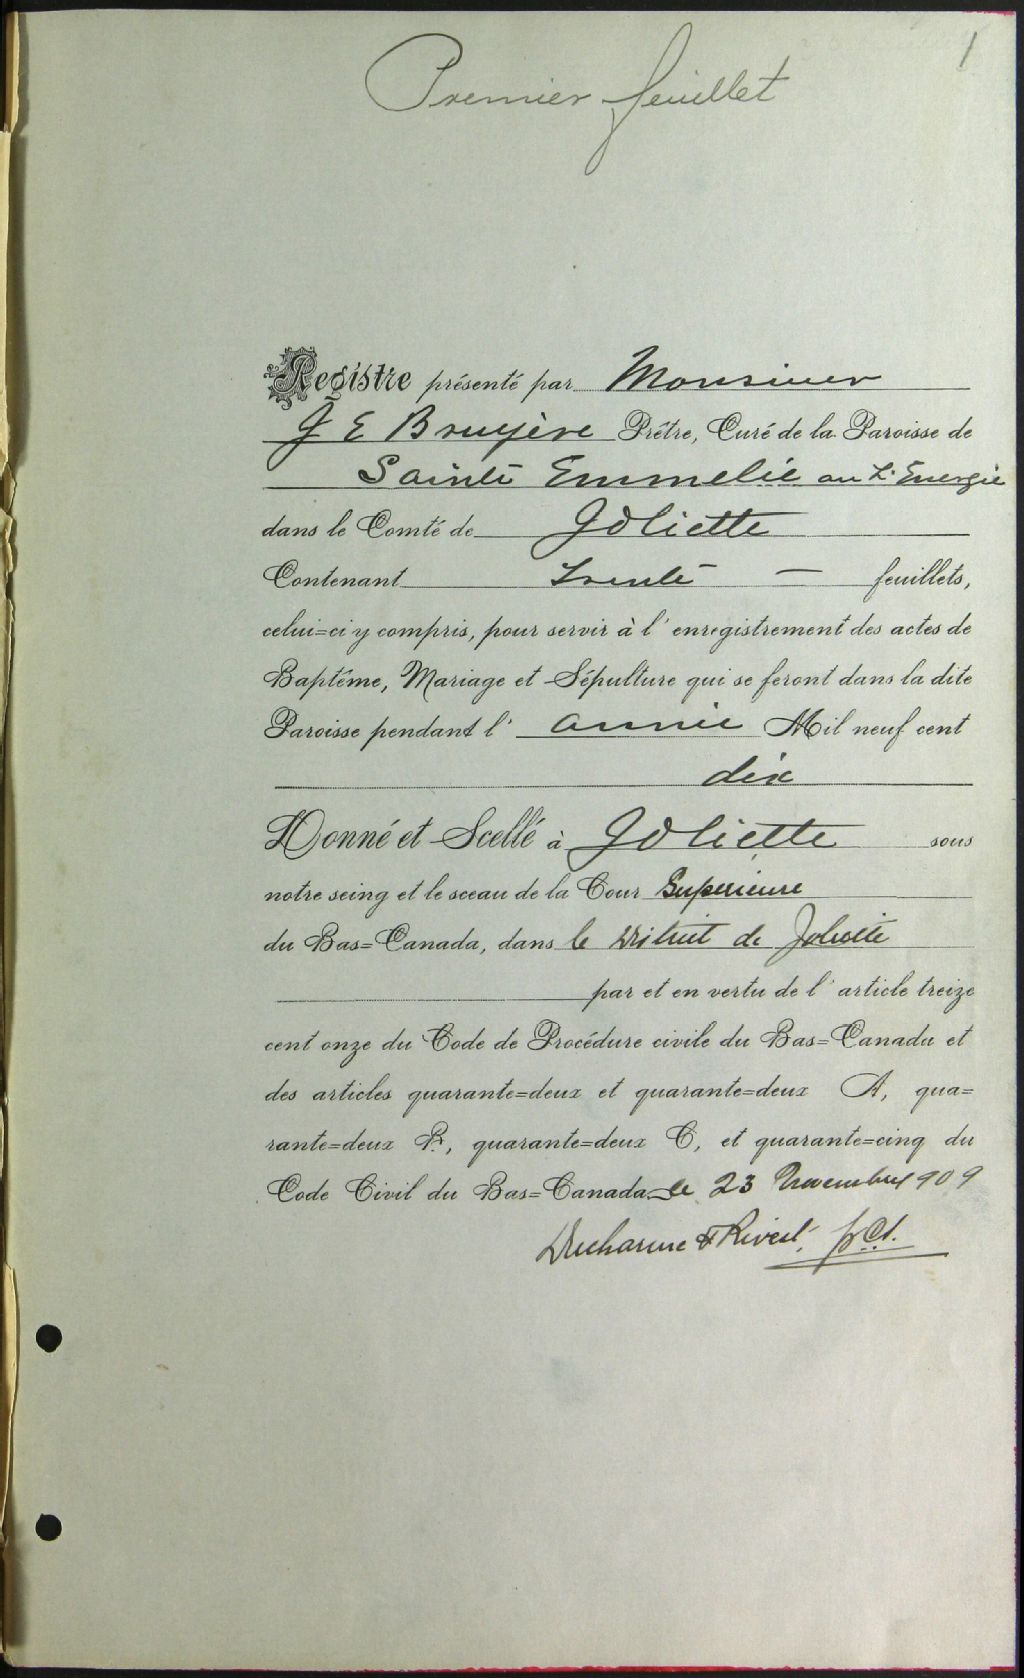 1
Premier feuillet
Registre présenté par Monsieur
J E Bruyère Prêtre, Curé de la Paroisse de
Sainte Emmelie ou L'Energie
dans le Comté de Joliette
Contenant Trente — feuillets,
celui=ci y compris, pour servir à l'enregistrement des actes de
Baptême, Mariage et Sépulture qui se feront dans la dite
Paroisse pendant l'année Mil neuf cent
dix
Donné et Scellé à Joliette sous
notre seing et le sceau de la Cour Superieure
du Bas=Canada, dans le District de Joliette
par et en vertu de l'article treize
cent onze du Code de Procédure civile du Bas=Canada et
des articles quarante=deux et quarante=deux A, qua=
rante=deux B, quarante=deux C, et quarante=cinq du
Code Civil du Bas=Canada le 23 Novembre 1909
Ducharme & Rivest,